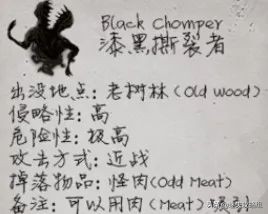 Black Chomper
漆黑撕裂者
出没地点：老树林（Old wood）
侵略性：高
危险性：极高
攻击方式：近战
掉落物品：怪肉(Odd Meat)
备注：可以用肉（Meat）